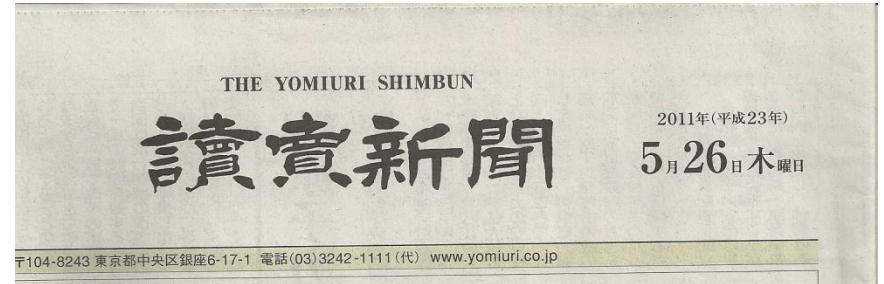 THE YOMIURI SHIMBUN
讀賣新聞
2011年(平成23年)
5月26日木曜日
〒104-8243 東京都中央区銀座6-17-1 電話(03)3242-1111(代) www.yomiuri.co.jp